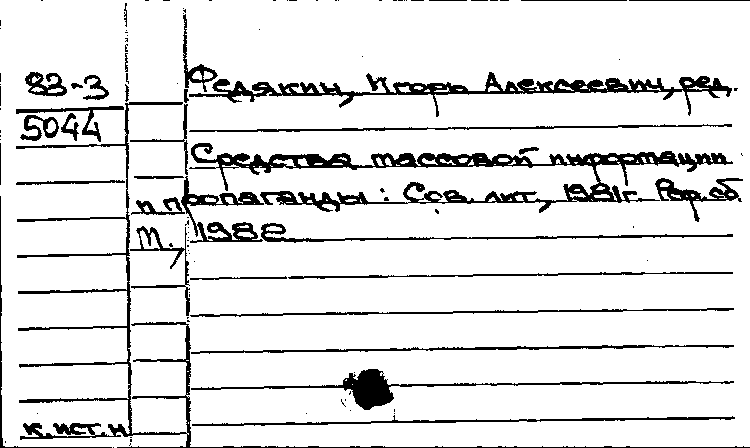 83-3 Федякин, Игорь Алексеевич, ред.
5044
Средства массовой информации
и пропаганды: Сов. лит., 1981г. Реф. сб.
М., 1982
к. ист. н